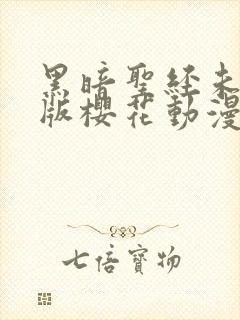 黑暗聖經未
版櫻花動漫
七倍寶物